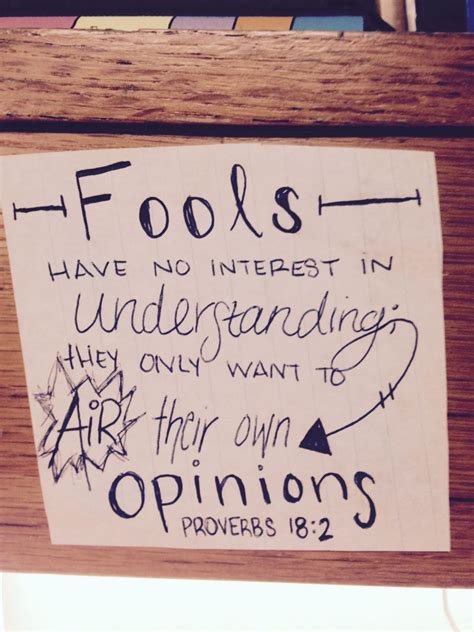 Fools
HAVE NO INTEREST IN
understanding;
they ONLY WANT TO
AiR their own
Opinions
PROVERBS 18:2